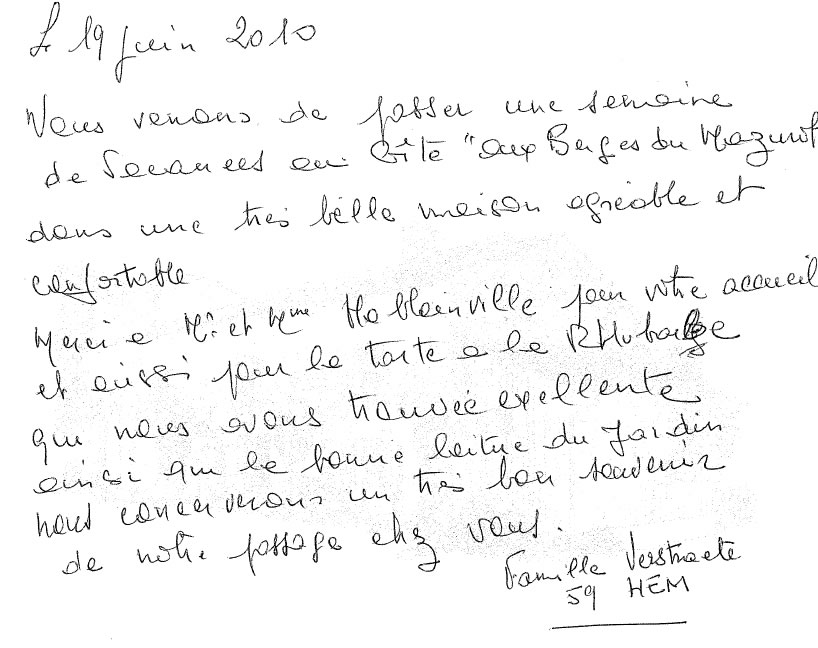 Le 19 juin 2010
Nous venons de passer une semaine
de vacances au Gîte "aux Berges du Mazurot
dans une très belle maison agréable et
confortable
Merci a Mr et Mme Hablainville pour votre accueil
et aussi pour la tarte a la RHubarbe
que nous avons trouvée exellente
ainsi que la bonne laitue du Jardin
nous conserverons un très bon souvenir
de notre passage chez vous.
Famille Verstraete
59 HEM